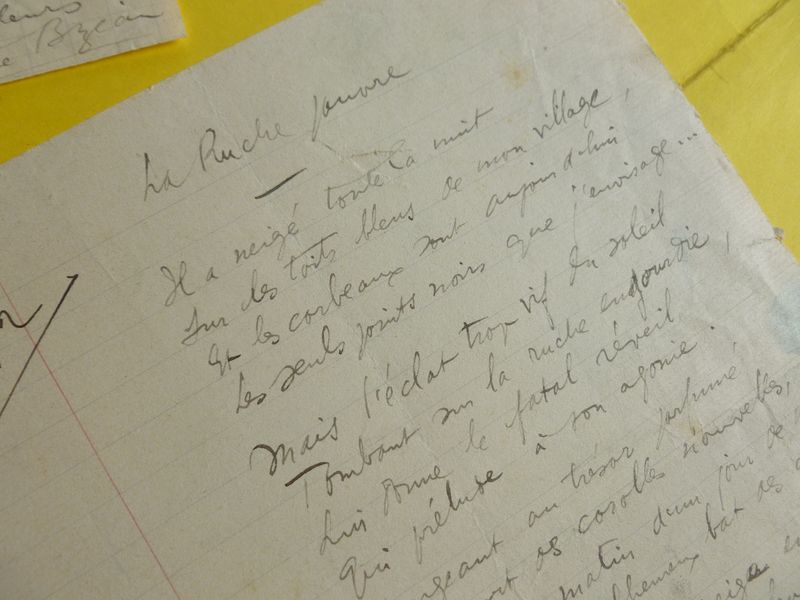 La Ruche pauvre
Il a neigé toute la nuit
Sur les toits bleus de mon village,
Et les corbeaux sont aujourd'hui
Les seuls points noirs que j'envisage...
Mais l'éclat trop vif du soleil
Tombant sur la ruche engourdie,
Lui donne le fatal réveil
Qui prélude à son agonie.
au trésor parfumé
corolles nouvelles,
matin d'un jour de
bat